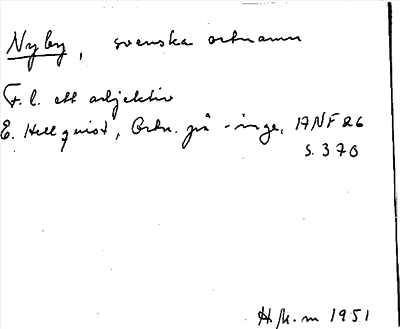 Nyby, svenska ortnamn
F. l. ett adjektiv
E. Hellquist, Ortn. på -inge, 17NF26
S. 370
H.k.m 1951